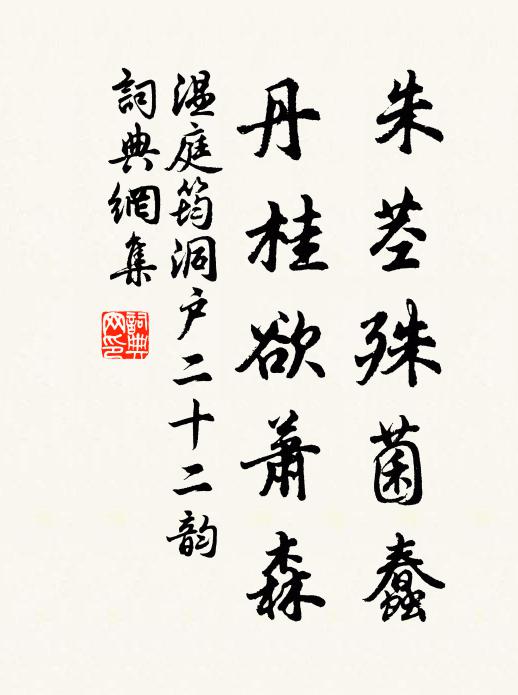 朱茎殊菌蠢
丹桂欲蕭森
溫庭筠洞户二十二韵
詞典網集
詞典網印